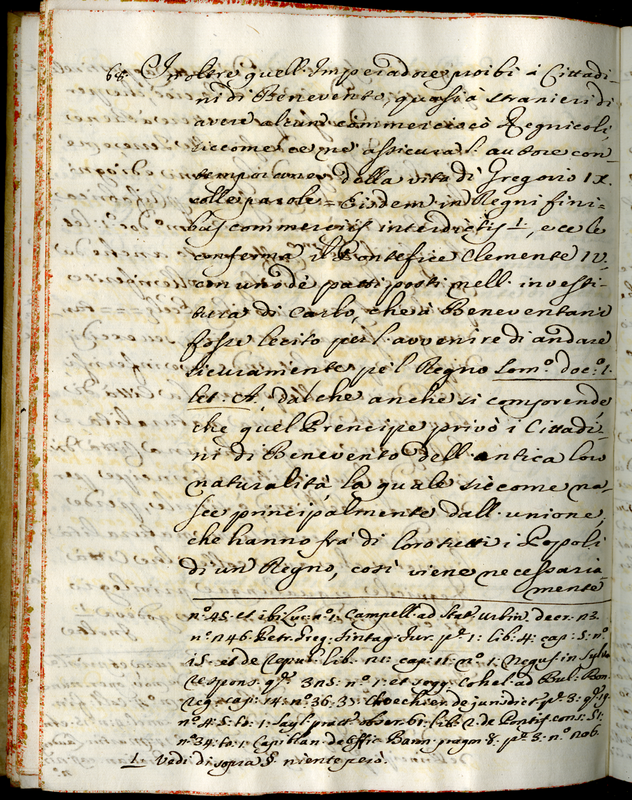 68. Inoltre quell'Imperadore proibi à Cittadi-
ni di Benevento, quasi à stranieri di
avere alcun commercio cò Regnicoli,
siccome ce ne assicura l'autore con-
temporaneo della vita di Gregorio IX.
colle parole = Eisdem in Regni fini-
bus commerciis interdictis 1, e ce le
conferma il Pontefice Clemente IV.
con uno dè patti posti nell'investi-
tura di Carlo, che à Beneventani
fosse lecito per l'avvenire di andare
sicuramente pe'l Regno Som.º doc.º 1.
let: A, dal che anche si comprende
che quel Prencipe privò i Cittadi-
ni di Benevento dell'antica loro
naturalità, la quale siccome na-
sce principalmente dall'unione,
che hanno frà di loro tutti i Popoli
di un Regno, così viene necessaria
mente
nº 45. et ibi Luc: nº 1. Campell. ad Stat. Urbin. decr. n3.
nº n246. Petr. Greg. Sintag. Jur. pº 1: lib: 4: cap: 5: nº
15. et de republ: lib: cap: 11: nº 1.
respons. qº nº 1: et ad Bul. Bon.
cap: 14: nº 36. 37. de jurisdict. pº 3: qº
nº 4. 5. to: 1: pract. observ. 61: lib: 2: de Pontif. cons:
nº 34. to: 1. Capiblan. de Offic. Baron. pragm 8: pº 3: nº 206.
1. Vedi di sopra §. niente però.